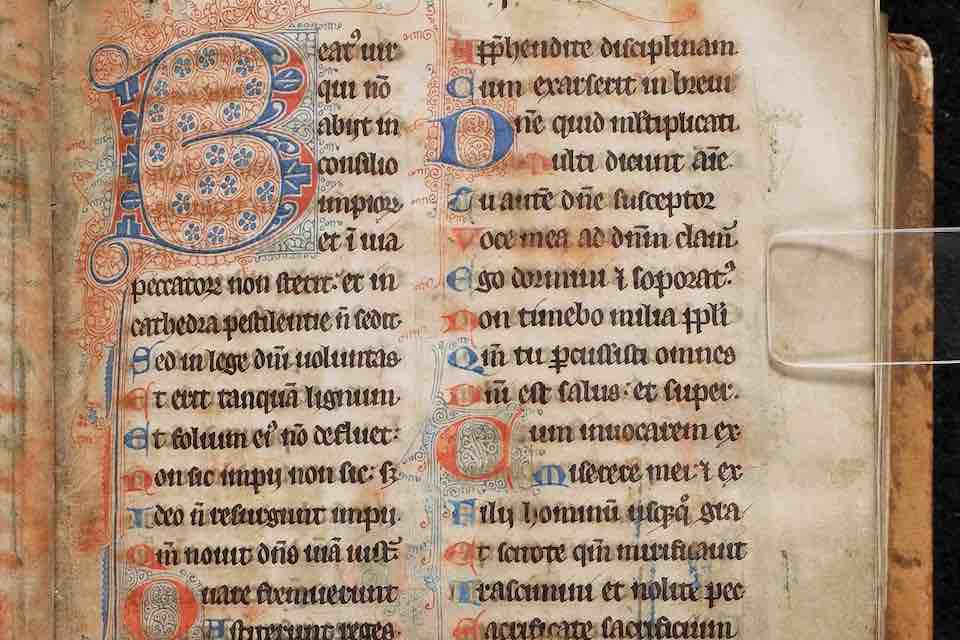 Beatꝰ uir
qui nō
abijt in
consilio
impioꝝ
et ī uia
peccatoꝝ non stetit: et in
cathedra pestilentie ñ sedit.
Sed in lege dñi uoluntas
Et erit tanquā lignum
Et folium eiꝰ nō defluet:
Non sic impij non sic: sꝫ
Ideo ñ resurgunt impij
Qm̄ nouit dñs uiā iust
Quare fremuerunt
Astiterunt reges
Apphendite disciplinam
Cum exarserit in breui
Dñe quid mltiplicati
Multi dicunt aīe
Tu autē dñe susceptor
Voce mea ad dñm clam
Ego dormiui ⁊ soporatꝰ
Non timebo milia ppli
Qm̄ tu ꝑcussisti omnes
Dñi est salus: et super
Cum inuocarem ex
Miserere mei ⁊ ex
Filij hominū usqꝫq̄ gra
Et scitote qm̄ mirificauit
Irascimini et nolite pec
Sacrificate sacrificium